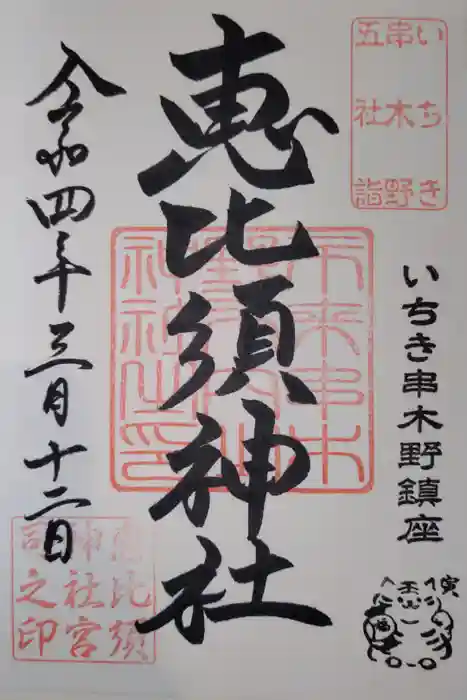 いちき
串木野
五社詣
いちき串木野鎮座
寅
恵比須神社
令和四年三月十二日
恵比須
神社宮
司之印